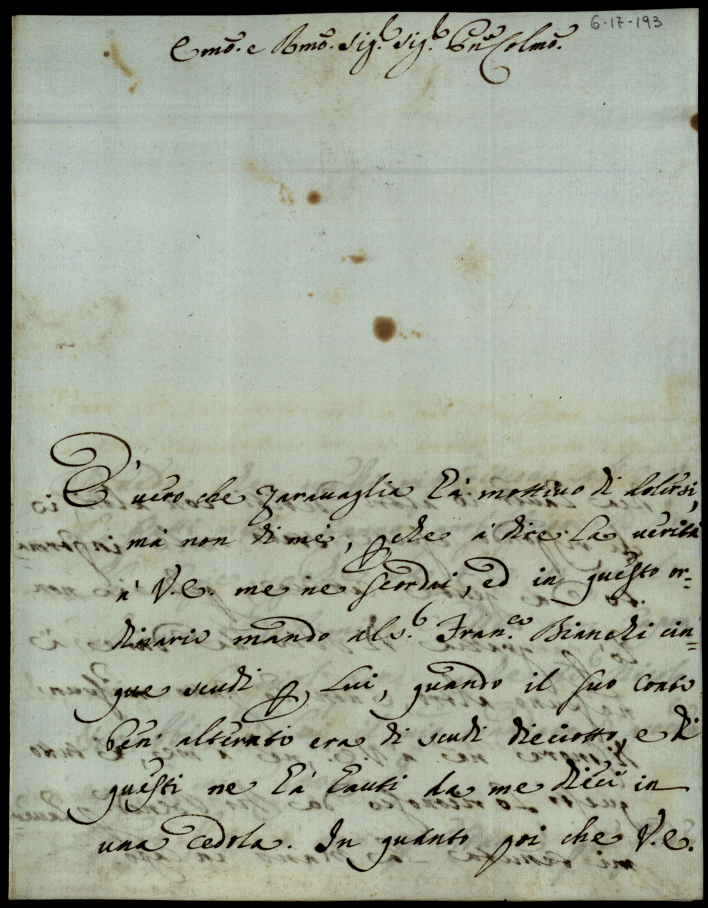 6-17-193
Emõ. e Rmõ. Sig.r Sig.r Pñe Colmõ.
È vero che Zaravaglia hà mottivo di dolersi,
mà non di mè, perche à dire la verità
à V.E. me ne scordai, ed in questo or=
dinario mando al S.r Fran.co Bianchi cin=
que scudi per Lui, quando il suo conto
ben alterato era di scudi dieciotto, e di
questi ne hà hauti da me dieci in
una cedola. In quanto poi che V.E.